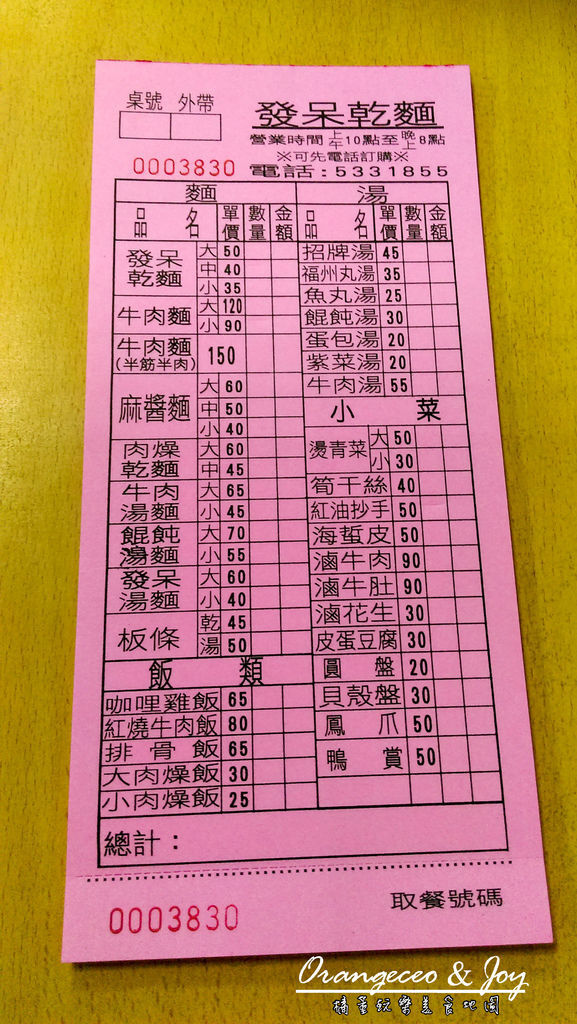 桌號 外帶
發呆乾麵
營業時間 上午10點至晚上8點
※可先電話訂購※
0003830 電話:5331855
麵 湯
品名 單價 數量 金額 品名 單價 數量 金額
發呆乾麵 大 50
中 40
小 35
牛肉麵 大 120
小 90
牛肉麵(半筋半肉) 150
麻醬麵 大 60
中 50
小 40
肉燥乾麵 大 60
中 45
牛肉湯麵 大 65
小 45
餛飩湯麵 大 70
小 55
發呆湯麵 大 60
小 40
板條 乾 45
湯 50
飯類
咖哩雞飯 65
紅燒牛肉飯 80
排骨飯 65
大肉燥飯 30
小肉燥飯 25
招牌湯 45
福州丸湯 35
魚丸湯 25
餛飩湯 30
蛋包湯 20
紫菜湯 20
牛肉湯 55
小菜
燙青菜 大 50
小 30
筍干絲 40
紅油抄手 50
海蜇皮 50
滷牛肉 90
滷牛肚 90
滷花生 30
皮蛋豆腐 30
圓盤 20
貝殼盤 30
鳳爪 50
鴨賞 50
總計:
0003830 取餐號碼
Orangeceo & Joy
橘董玩樂美食地圖